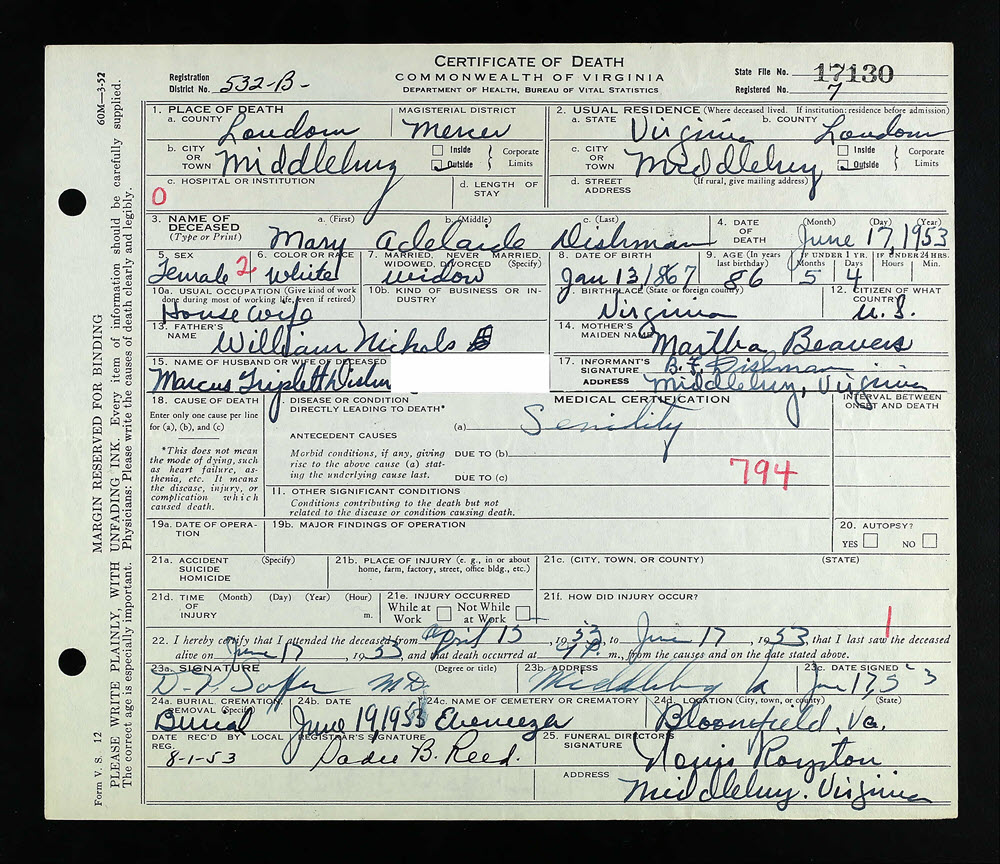 CERTIFICATE OF DEATH
COMMONWEALTH OF VIRGINIA
DEPARTMENT OF HEALTH, BUREAU OF VITAL STATISTICS
Registration District No. 532-B-
State File No. 17130
Registered No. 7
60M—3-52
MARGIN RESERVED FOR BINDING
PLEASE WRITE PLAINLY, WITH UNFADING INK. Every item of information should be carefully supplied.
The correct age is especially important. Physicians: Please write the causes of death clearly and legibly.
Form V. S. 12
1. PLACE OF DEATH
a. COUNTY Loudoun
MAGISTERIAL DISTRICT Mercer
2. USUAL RESIDENCE (Where deceased lived. If institution: residence before admission)
a. STATE Virginia b. COUNTY Loudoun
b. CITY OR TOWN Middleburg
Inside Outside Corporate Limits
c. CITY OR TOWN Middleburg
Inside Outside Corporate Limits
c. HOSPITAL OR INSTITUTION
0
d. LENGTH OF STAY
d. STREET ADDRESS (If rural, give mailing address)
3. NAME OF DECEASED (Type or Print)
a. (First) b. (Middle) c. (Last)
Mary Adelaide Dishman
4. DATE OF DEATH (Month) (Day) (Year)
June 17, 1953
5. SEX Female 2
6. COLOR OR RACE White
7. MARRIED, NEVER MARRIED, WIDOWED, DIVORCED (Specify) widow
8. DATE OF BIRTH Jan 13/1867
9. AGE (In years last birthday) 86
IF UNDER 1 YR. Months 5 Days 4
IF UNDER 24 HRS. Hours Min.
10a. USUAL OCCUPATION (Give kind of work done during most of working life, even if retired)
House wife
10b. KIND OF BUSINESS OR INDUSTRY
11. BIRTHPLACE (State or foreign country)
Virginia
12. CITIZEN OF WHAT COUNTRY?
U.S.
13. FATHER'S NAME William Nichols
14. MOTHER'S MAIDEN NAME Martha Beavers
15. NAME OF HUSBAND OR WIFE OF DECEASED
Marcus Triplett Dishm
17. INFORMANT'S SIGNATURE B. F. Dishman
ADDRESS Middleburg, Virginia
18. CAUSE OF DEATH
Enter only one cause per line for (a), (b), and (c)
*This does not mean the mode of dying, such as heart failure, asthenia, etc. It means the disease, injury, or complication which caused death.
MEDICAL CERTIFICATION
INTERVAL BETWEEN ONSET AND DEATH
DISEASE OR CONDITION DIRECTLY LEADING TO DEATH*
(a) Senility
ANTECEDENT CAUSES
Morbid conditions, if any, giving rise to the above cause (a) stating the underlying cause last.
DUE TO (b)
DUE TO (c)
794
11. OTHER SIGNIFICANT CONDITIONS
Conditions contributing to the death but not related to the disease or condition causing death.
19a. DATE OF OPERATION
19b. MAJOR FINDINGS OF OPERATION
20. AUTOPSY?
YES NO
21a. ACCIDENT SUICIDE HOMICIDE (Specify)
21b. PLACE OF INJURY (e. g., in or about home, farm, factory, street, office bldg., etc.)
21c. (CITY, TOWN, OR COUNTY) (STATE)
21d. TIME OF INJURY (Month) (Day) (Year) (Hour) m.
21e. INJURY OCCURRED
While at Work Not While at Work
21f. HOW DID INJURY OCCUR?
1
22. I hereby certify that I attended the deceased from April 15, 1953, to June 17, 1953 that I last saw the deceased
alive on June 17, 1953, and that death occurred at m., from the causes and on the date stated above.
23a. SIGNATURE (Degree or title)
M.D.
23b. ADDRESS
Middleburg Va
23c. DATE SIGNED
June 17, 53
24a. BURIAL, CREMATION REMOVAL (Specify)
Burial
24b. DATE
June 19, 1953
24c. NAME OF CEMETERY OR CREMATORY
Ebenezer
24d. LOCATION (City, town, or county) (State)
Bloomfield, Va.
DATE REC'D BY LOCAL REG.
8-1-53
REGISTRAR'S SIGNATURE
Sadie B. Reed.
25. FUNERAL DIRECTOR'S SIGNATURE
Royston
ADDRESS
Middleburg, Virginia